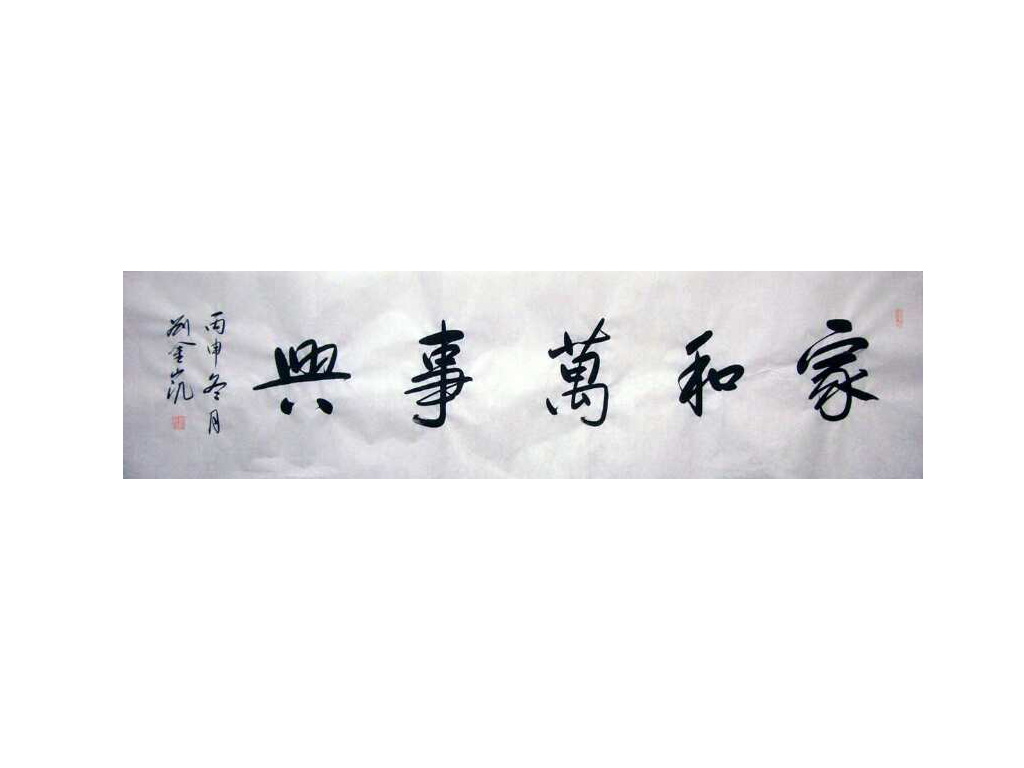 家和萬事興
丙申冬月
劉金凱